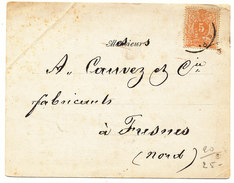 5
Messieurs
A. Cauvez et Cie
fabricants
à Fresnes
(Nord)
20
25-